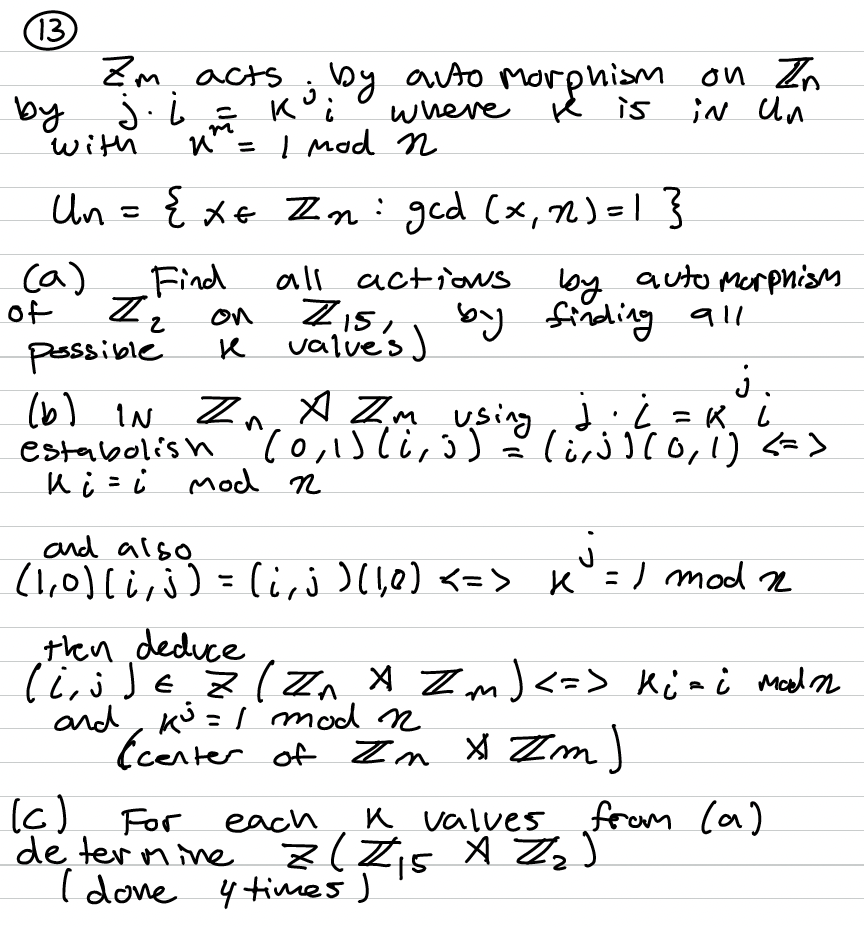 13
ℤm acts by automorphism on ℤn
by j·i = K^j i where K is in Un
with K^m = 1 mod n
Un = { x ∈ ℤn : gcd (x, n) = 1 }
(a) Find all actions by automorphism
of ℤ2 on ℤ15, by finding all
possible K values)
(b) IN ℤn ⋊ ℤm using j·i = K^j i
estabolish (0,1)(i,j) = (i,j)(0,1) <=>
Ki = i mod n
and also
(1,0)(i,j) = (i,j)(1,0) <=> K^j = 1 mod n
then deduce
(i,j) ∈ Z(ℤn ⋊ ℤm) <=> Ki = i mod n
and K^j = 1 mod n
(center of ℤn ⋊ ℤm)
(c) For each K values from (a)
determine Z(ℤ15 ⋊ ℤ2)
(done 4 times)